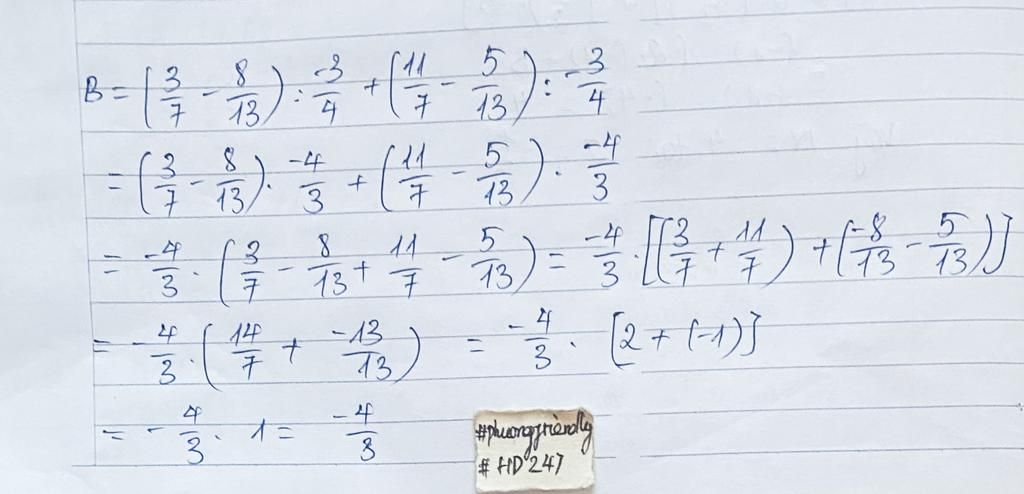 B = (3/7 - 8/13) : -3/4 + (11/7 - 5/13) : -3/4
= (3/7 - 8/13) . -4/3 + (11/7 - 5/13) . -4/3
= -4/3 . (3/7 - 8/13 + 11/7 - 5/13) = -4/3 . [(3/7 + 11/7) + (-8/13 - 5/13)]
= -4/3 . (14/7 + -13/13) = -4/3 . [2 + (-1)]
= -4/3 . 1 = -4/3
#phuongfriendly
# HD 247